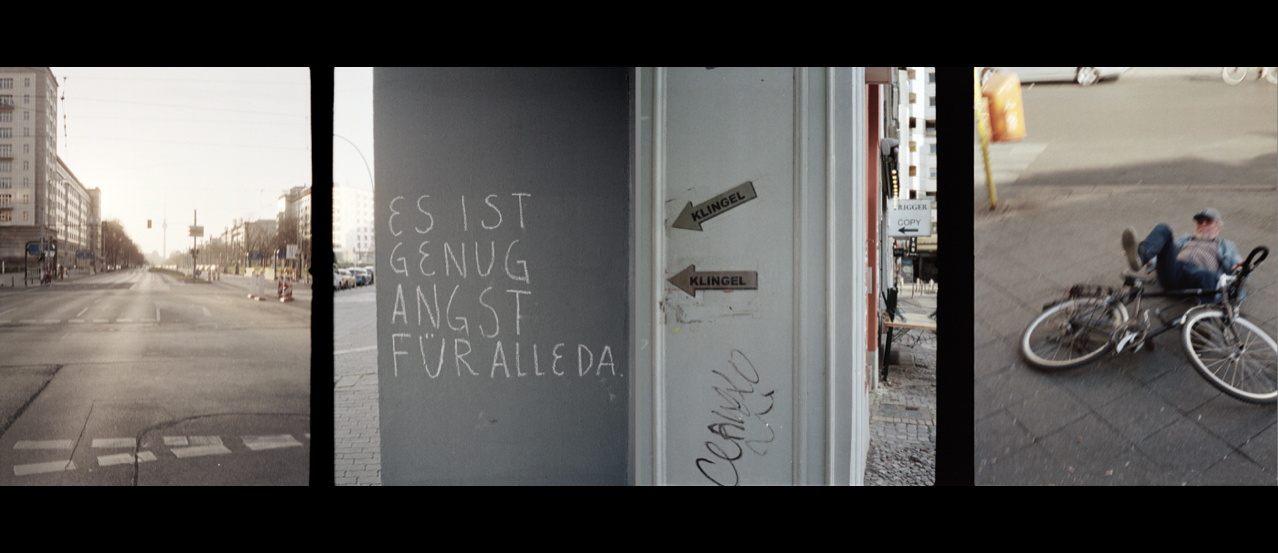 ES IST
GENUG
ANGST
FÜR ALLE DA.
KLINGEL
KLINGEL
TRIGGER
COPY